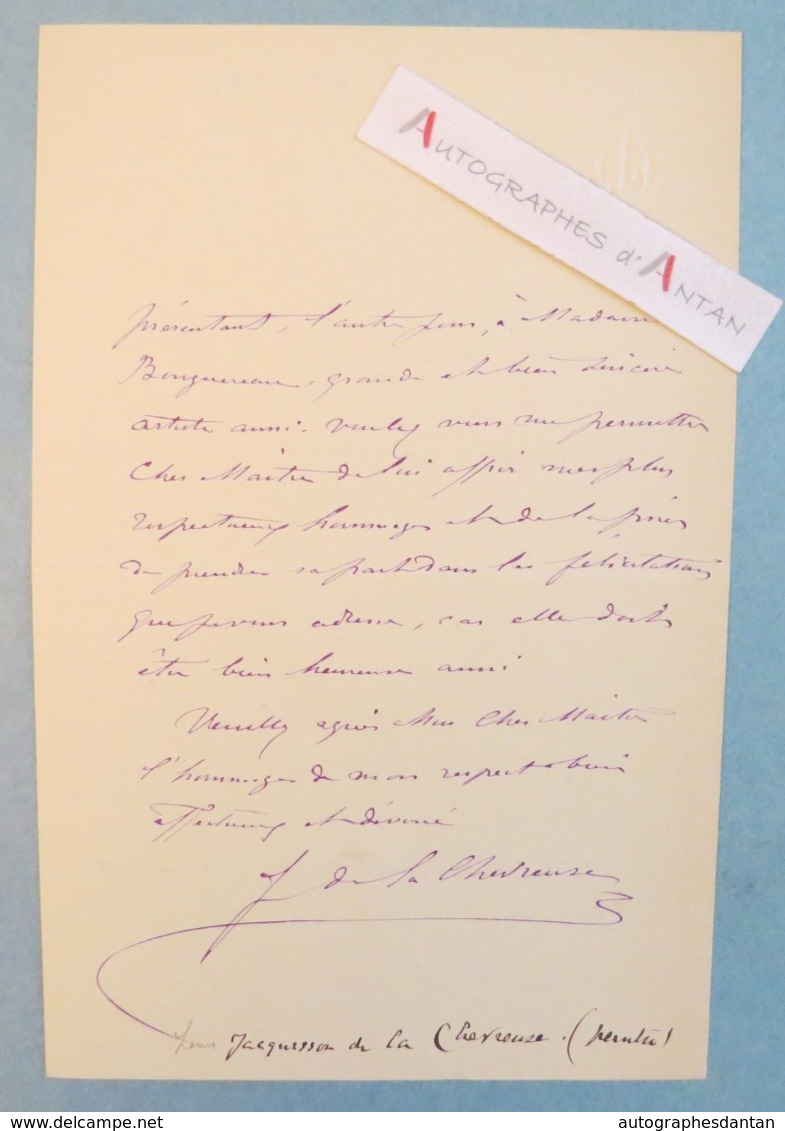 AUTOGRAPHES d'ANTAN
présentant, l'autre jour, à Madame
Bouguereau, grande et bien sincère
artiste aussi. Voulez vous me permettre
Cher Maître de lui offrir mes plus
respectueux hommages et de la prier
de prendre sa part dans les félicitations
que je vous adresse, car elle doit
être bien heureuse aussi
Veuillez agréer Mon Cher Maître
l'hommage de mon respect bien
affectueux et dévoué
J de la Chevreuse
Louis Jacquesson de la Chevreuse. (peintre)
delcampe.net
autographesdantan